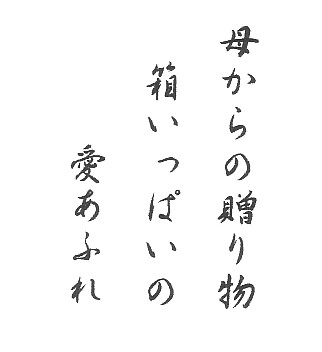 母からの贈り物
箱いっぱいの
愛あふれ